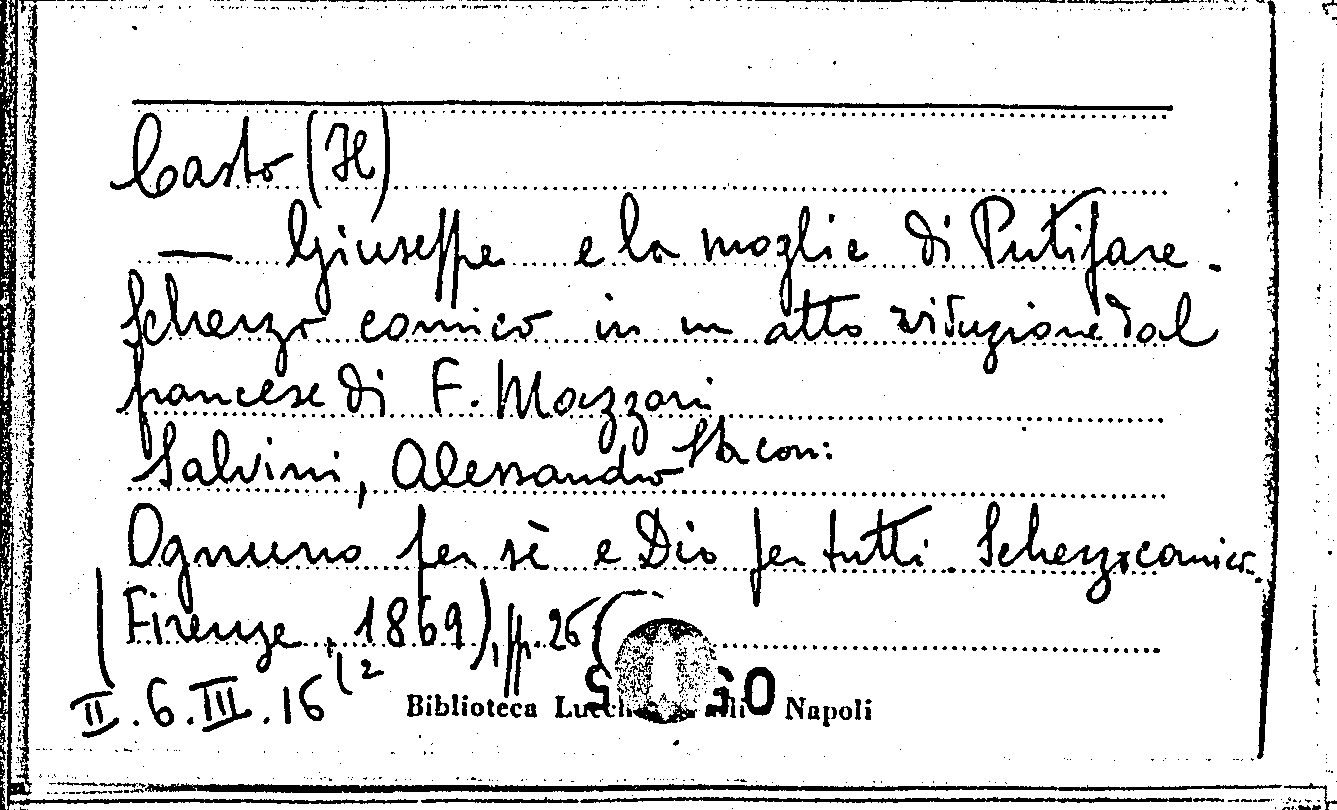 Casto (H)
— Giuseppe e la moglie di Putifare.
Scherzo comico in un atto riduzione dal
francese di F. Mazzoni
Salvini, Alessandro
Ognuno per sè e Dio per tutti. Scherzo comico.
Firenze, 1869), pp. 26 (
II.6.III.16(2
Biblioteca Napoli